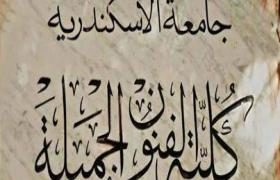 جامعة الأسكندرية
كُليَّة الفنون الجميلة